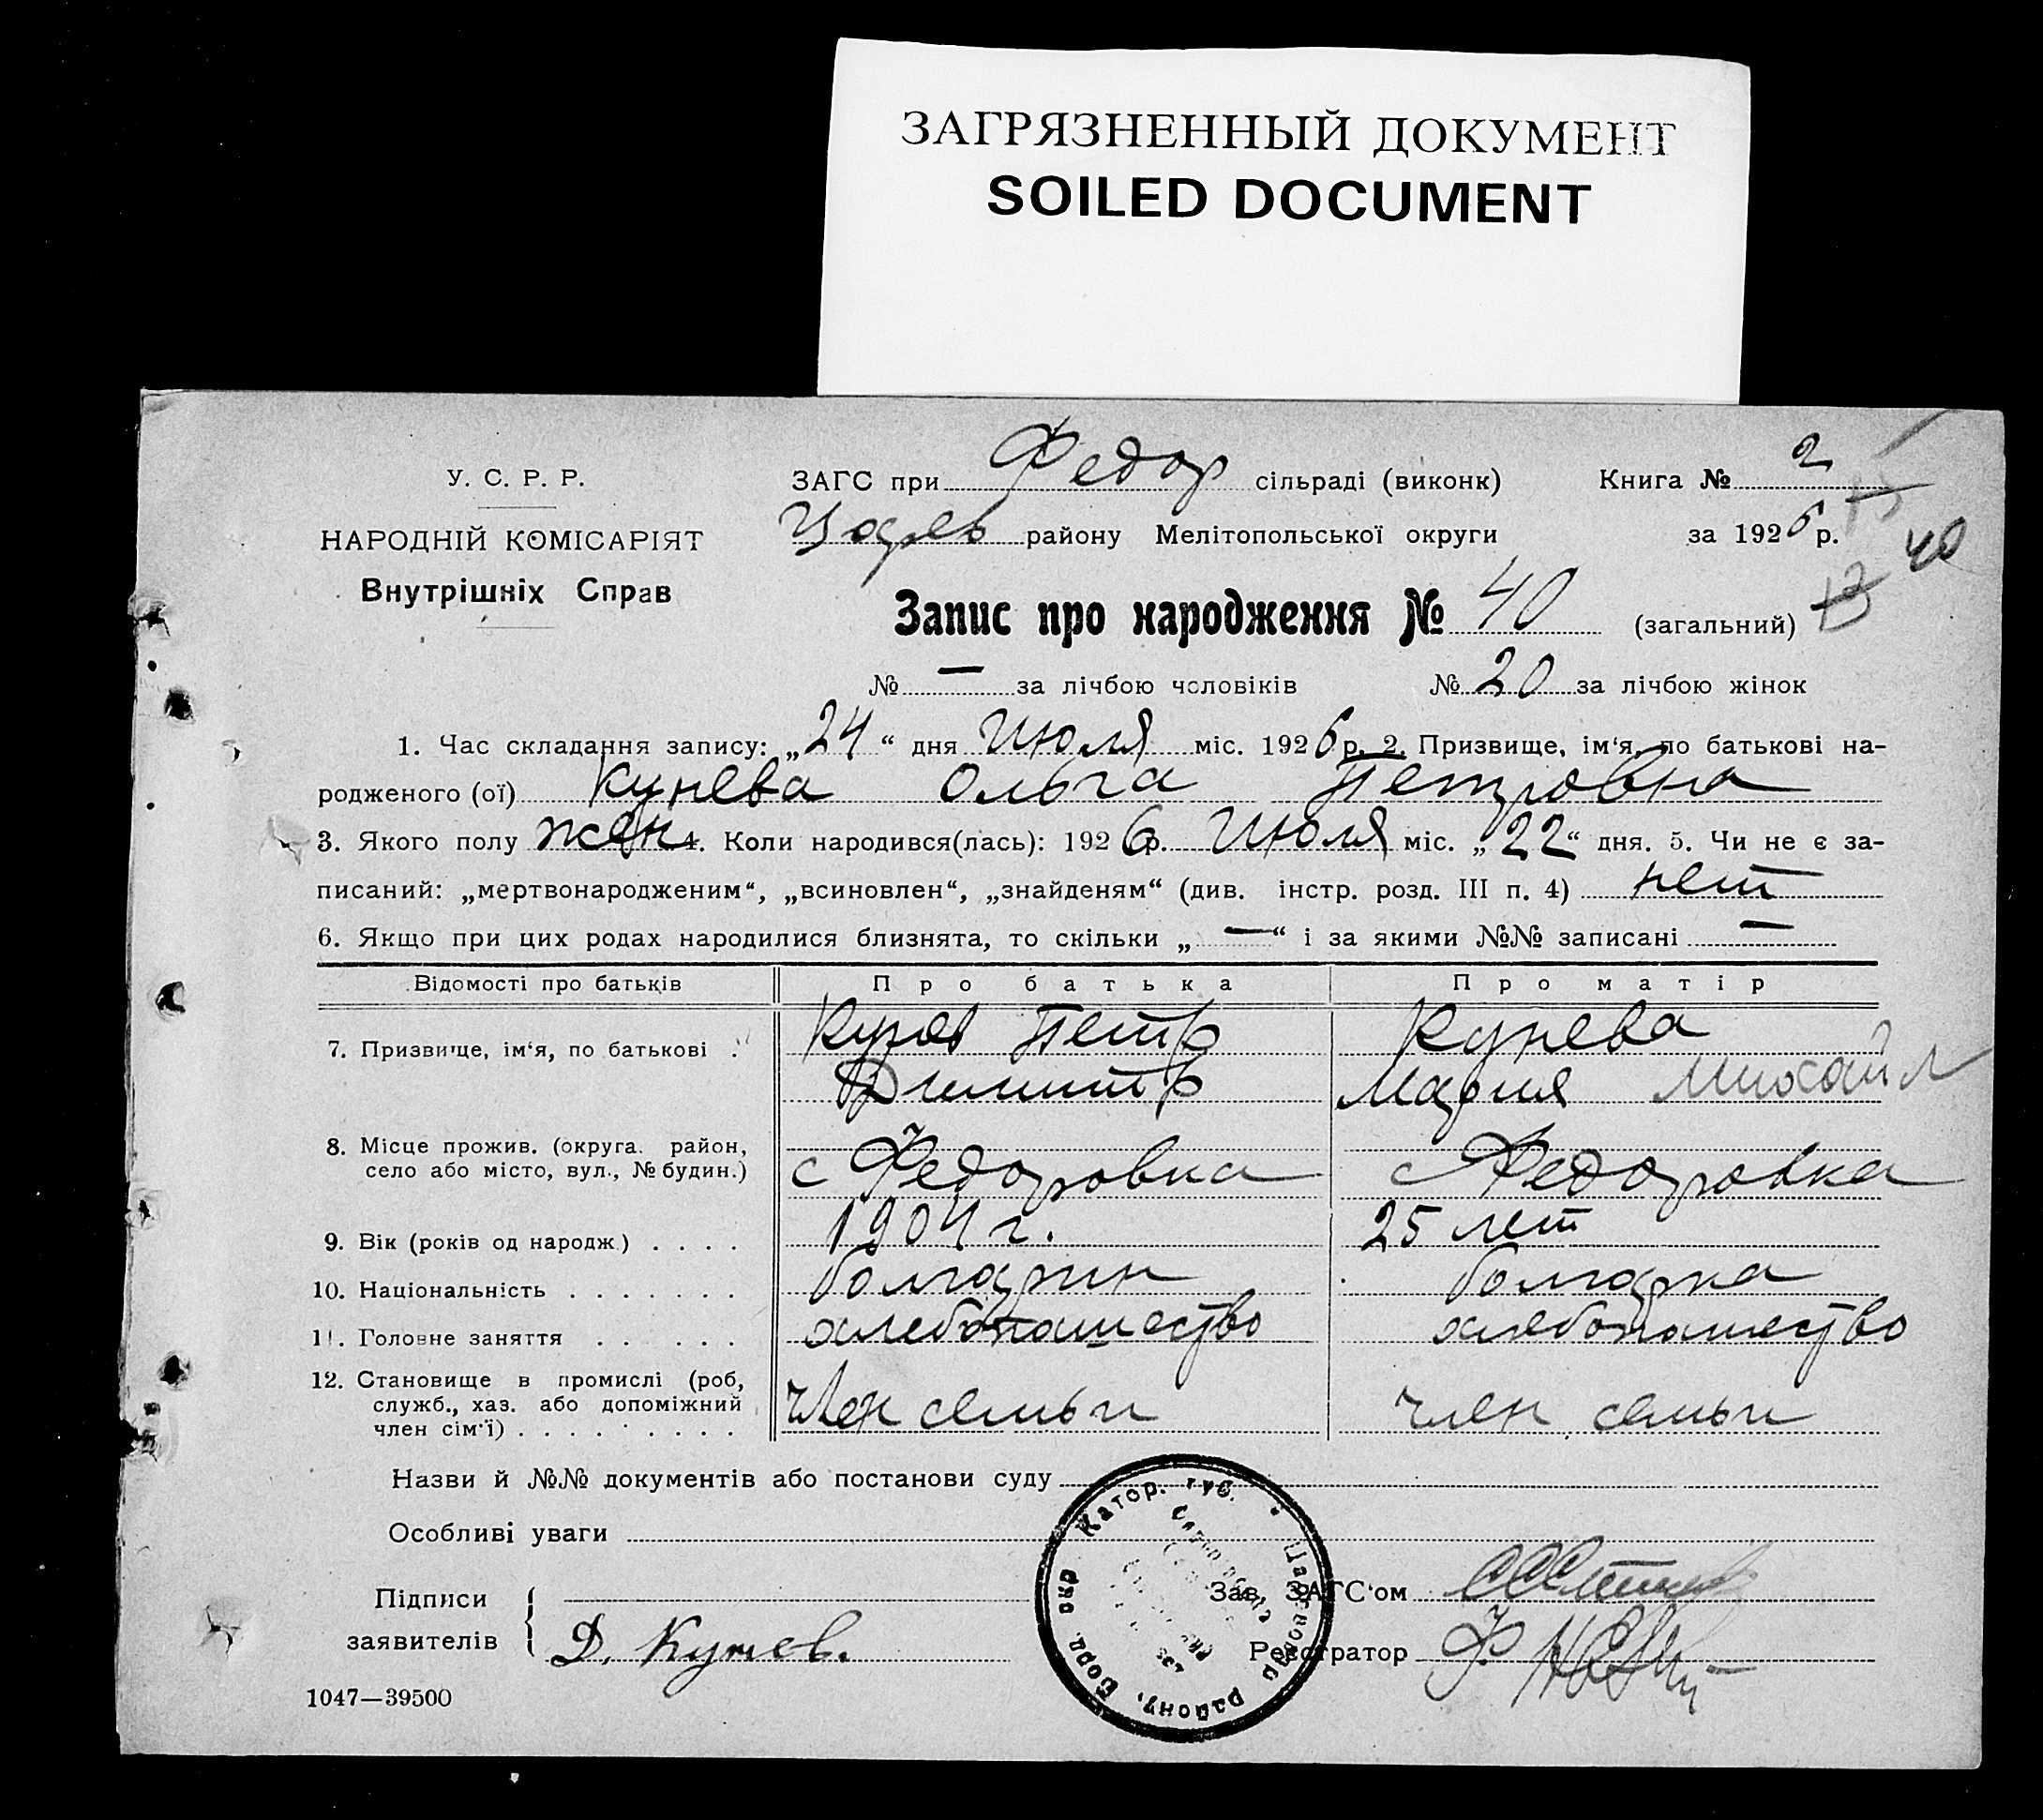 ЗАГРЯЗНЕННЫЙ ДОКУМЕНТ
SOILED DOCUMENT
У. С. Р. Р.
НАРОДНІЙ КОМІСАРІЯТ
Внутрішніх Справ
ЗАГС при Федор сільраді (виконк) Книга № 2
району Мелітопольської округи за 1926 р.
40
Запис про народження № 40 (загальний) 13
№ — за лічбою чоловіків № 20 за лічбою жінок
1. Час складання запису: „24“ дня Июля міс. 1926 р. 2. Призвище, ім‘я, по батькові на-
родженого (ої) Кунева Ольга Петровна
3. Якого полу жен 4. Коли народився(лась): 1926 р. Июля міс. „22“ дня. 5. Чи не є за-
писаний: „мертвонародженим“, „всиновлен“, „знайденям“ (див. інстр. розд. III п. 4) нет
6. Якщо при цих родах народилися близнята, то скільки „—“ і за якими №№ записані —
Відомості про батьків Про батька Про матір
7. Призвище, ім‘я, по батькові . Кунев Петр Кунева
Димитр Мария Михайл
8. Місце прожив. (округа. район,
село або місто, вул., № будин.) с Федоровка с Федоровка
9. Вік (років од народж.) . . . . 1904 г. 25 лет
10. Національність . . . . . . . болгарин болгарка
11. Головне заняття . . . . . хлебопашество хлебопашество
12. Становище в промислі (роб,
служб., хаз. або допоміжний
член сім‘ї) . . . . . . . . . член семьи член семьи
Назви й №№ документів або постанови суду
Особливі уваги
Катор. губ. Царсновод району, Борд. окр
Підписи
заявителів Д. Кунев.
Зав. ЗАГС‘ом
Реєстратор
1047—39500